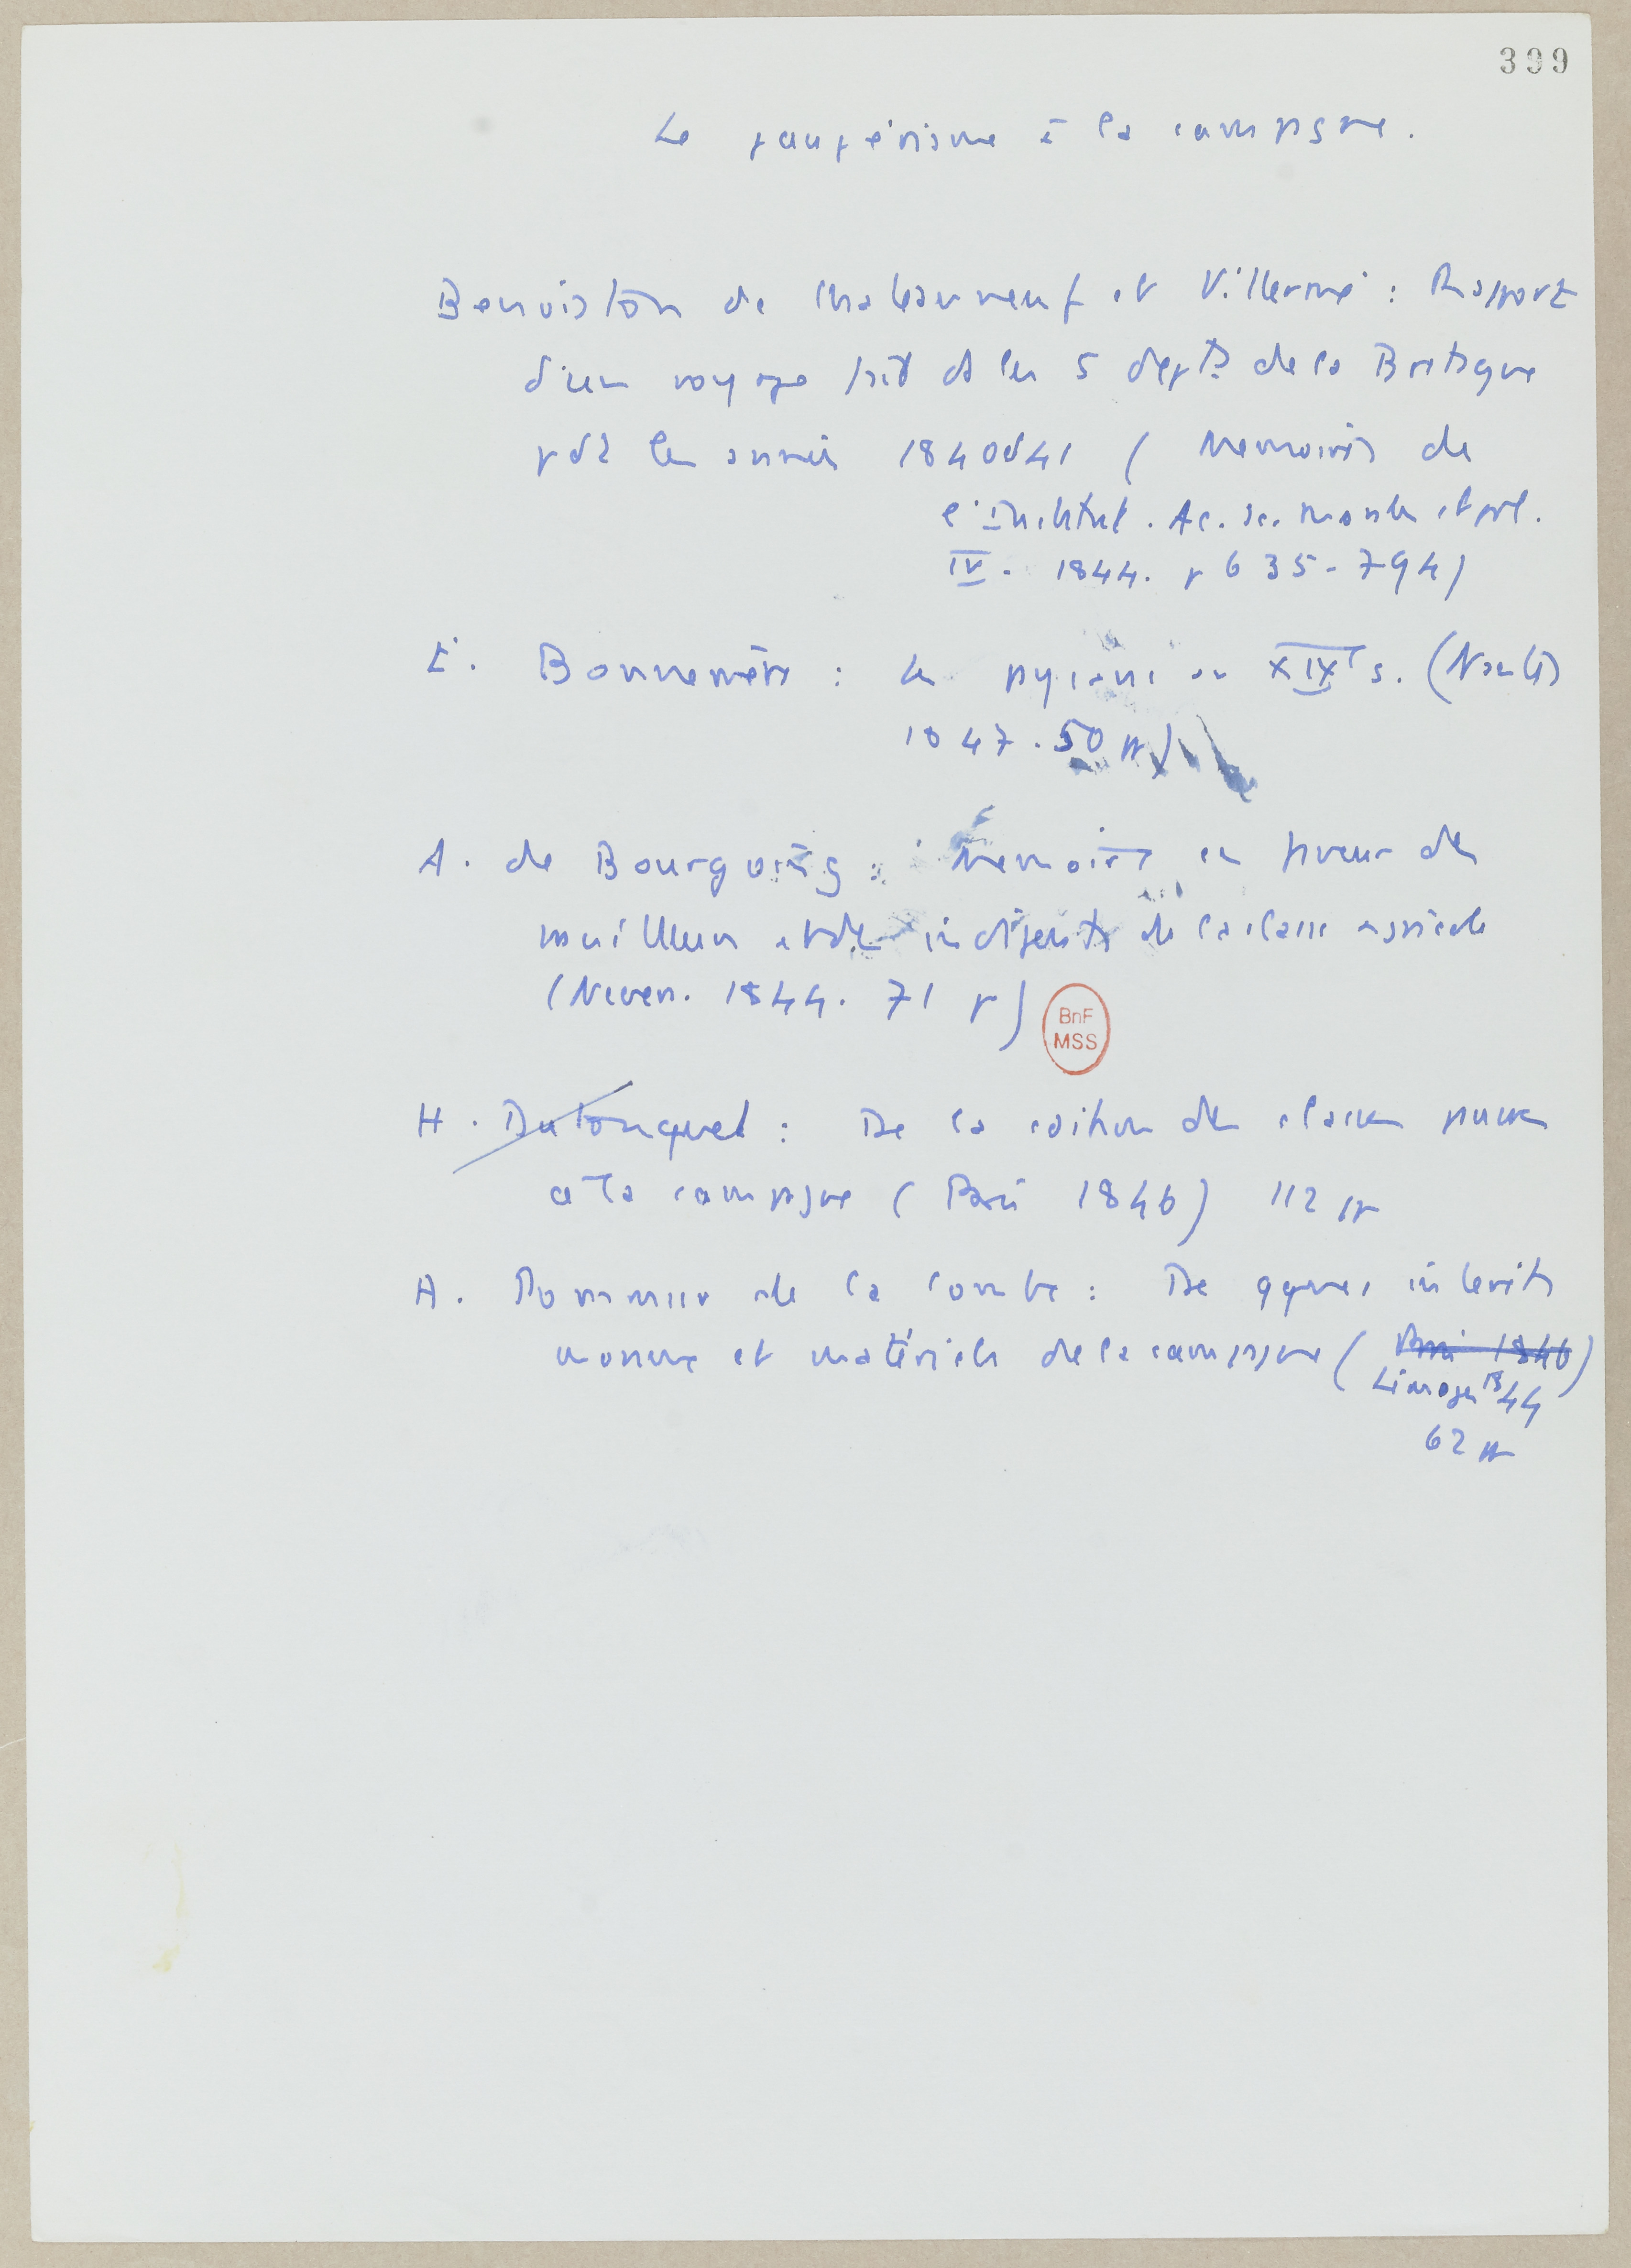 399
Le paupérisme à la campagne.
Benoiston de Chateauneuf et Villermé : Rapport
d'un voyage fait ds les 5 depts de la Bretagne
pdt les années 1840 et 41 ( Memoires de
l'Institut. Ac. sc. morales et pol.
IV. 1844. p 635-794)
E. Bonnemère : Les paysans au XIXe s. (Nantes
1847. 50 pp)
A. de Bourgoing : Memoire en faveur des
travailleurs et des indigents de la classe agricole
(Nevers. 1844. 71 p)
BnF
MSS
H. Dutouquet : De la cdition des classes pauvres
à la campagne ( Paris 1846) 112 pp
A. de la Combe : De qques intérêts
moraux et matériels de la campagne ( Paris 1846)
Limoges 1844
62 pp